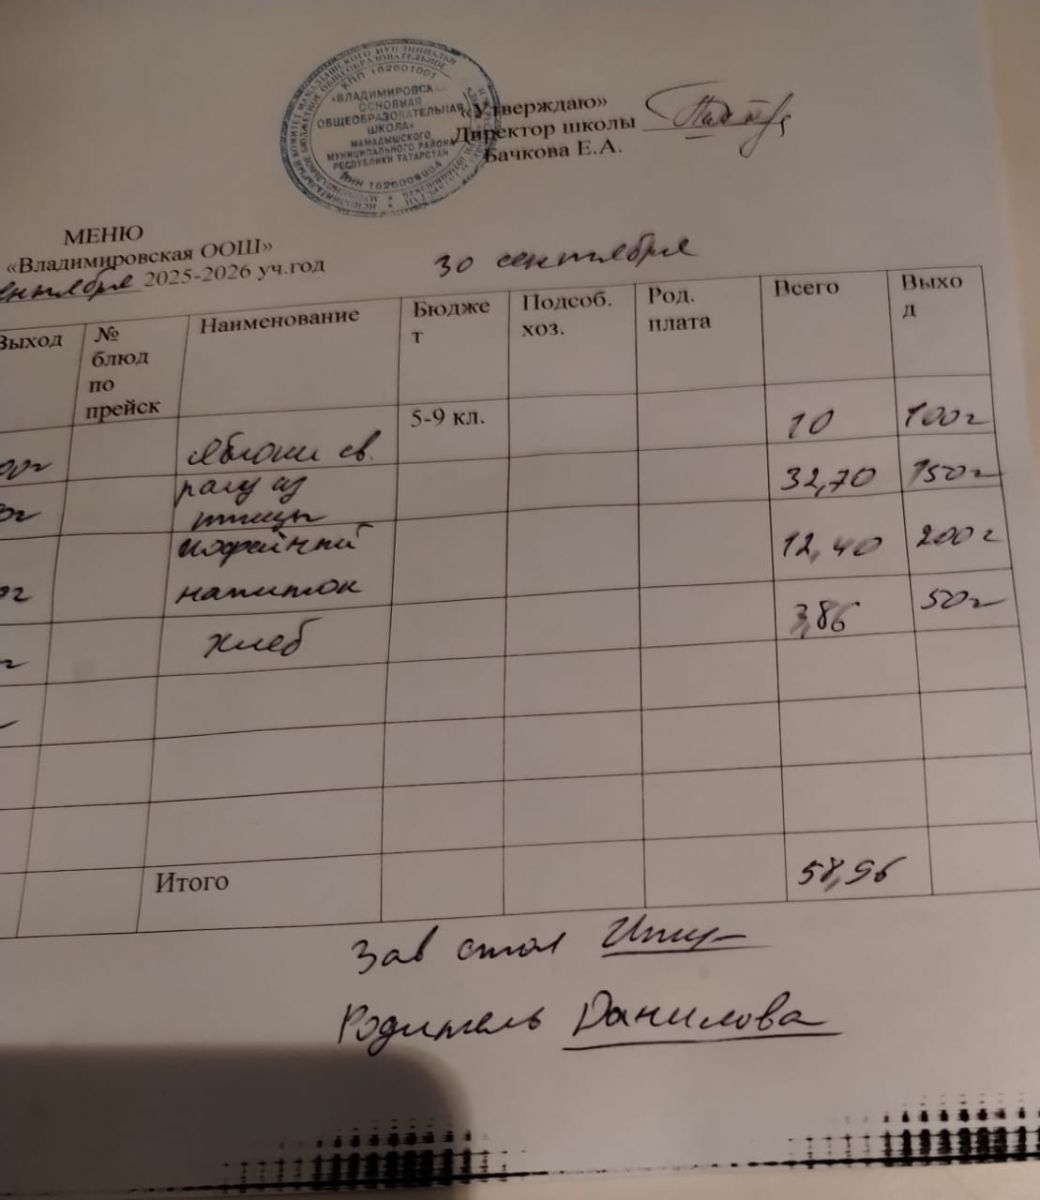 КПП 162601001
«ВЛАДИМИРОВСКАЯ
ОСНОВНАЯ
ОБЩЕОБРАЗОВАТЕЛЬНАЯ
ШКОЛА»
МАМАДЫШСКОГО
МУНИЦИПАЛЬНОГО РАЙОНА
РЕСПУБЛИКИ ТАТАРСТАН
«Утверждаю»
Директор школы
Бачкова Е.А.
МЕНЮ
«Владимировская ООШ»
сентября 2025-2026 уч.год
30 сентября
Выход № блюд по прейск Наименование Бюджет Подсоб. хоз. Род. плата Всего Выход
5-9 кл.
яблоки св. 10 100г
рагу из птицы 32,70 150г
кофейный напиток 12,40 200г
хлеб 3,86 50г
Итого 58,96
Зав стол
Родитель Данилова